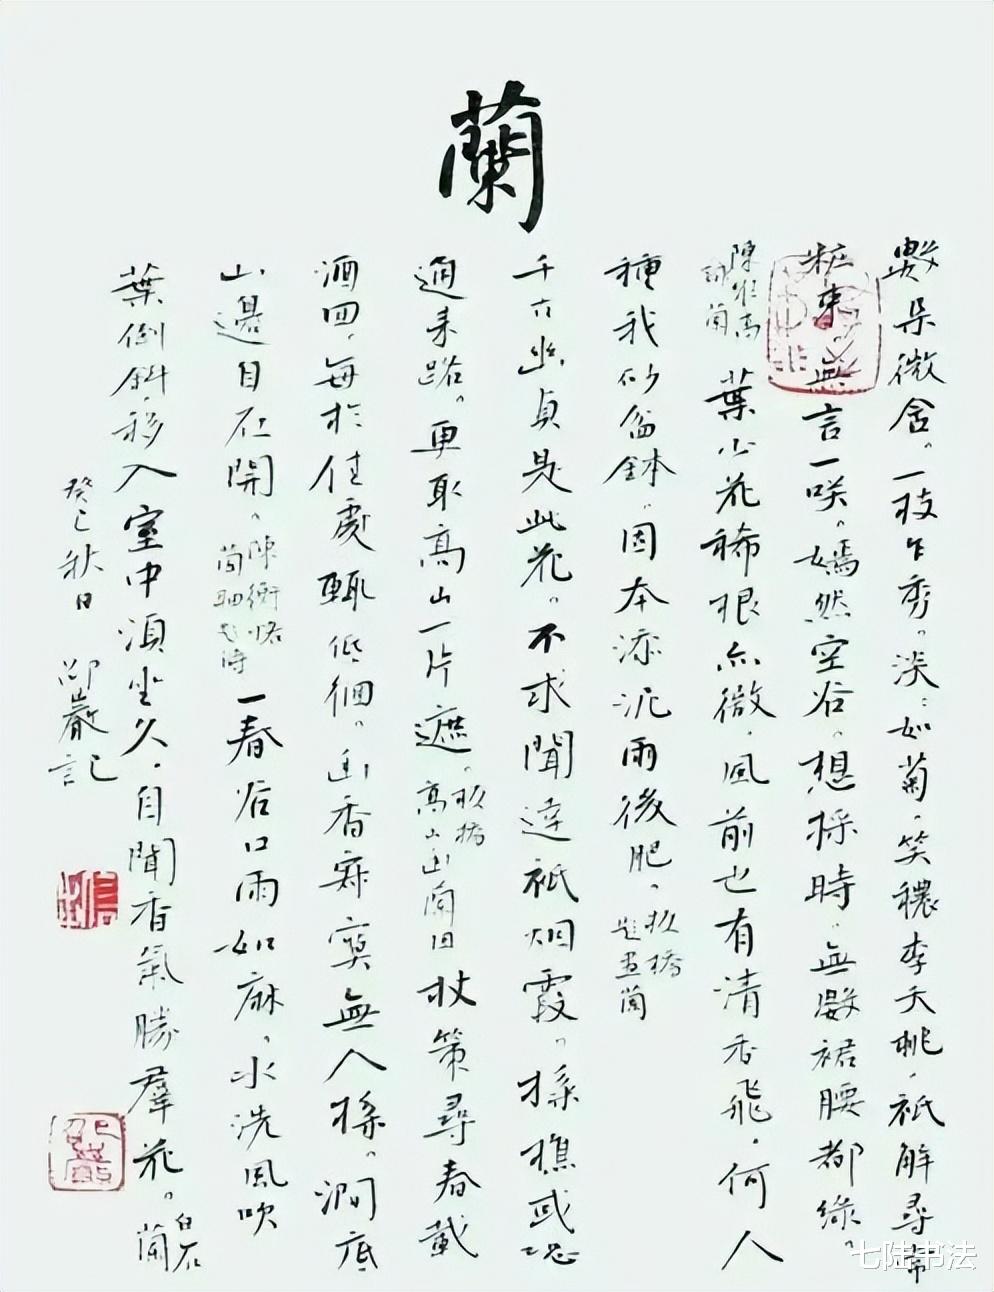 蘭
數朵微含。一枝乍秀。淡〻如菊。笑穠李夭桃。祇解尋常
粧束。無言一咲。嫣然空谷。想採時。無數裙腰都綠。
陳維嵩詠蘭 葉少花稀根亦微。風前也有清香飛。何人
種我砂盆鉢。因本添泥雨後肥。板橋題畫蘭
千古幽貞是此花。不求聞達祇烟霞。採樵或恐
通來路。更取高山一片遮。板橋高山幽蘭图 杖策尋春載
酒回。每於佳處輒低徊。幽香寂寞無人採。澗底
山邊自在開。陳衡恪蘭冊題詩 一春谷口雨如麻。水洗風吹
葉倒斜。移入室中須坐久。自聞香氣勝羣花。白石蘭
癸巳秋日 邵巖記
邵巖
七陆书法